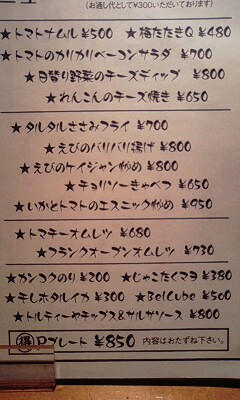 (お通し代として¥300いただいております)
★トマトナムル ¥500 ★梅たたきQ ¥480
★トマトのカリカリベーコンサラダ ¥700
★日替り野菜のチーズディップ ¥800
★れんこんのチーズ焼き ¥650
★タルタルささみフライ ¥700
★えびのバリバリ揚げ ¥800
★えびのケイジャン炒め ¥800
★チョリソーきゃべつ ¥650
★いかとトマトのエスニック炒め ¥950
★トマチーオムレツ ¥680
★フランクオープンオムレツ ¥730
★カンコクのり ¥200 ★じゃこたくマヨ ¥380
★干しホタルイカ ¥300 ★BelCube ¥500
★トルティーヤチップス&サルサソース ¥800
得 Pプレート ¥850 内容はおたずね下さい。